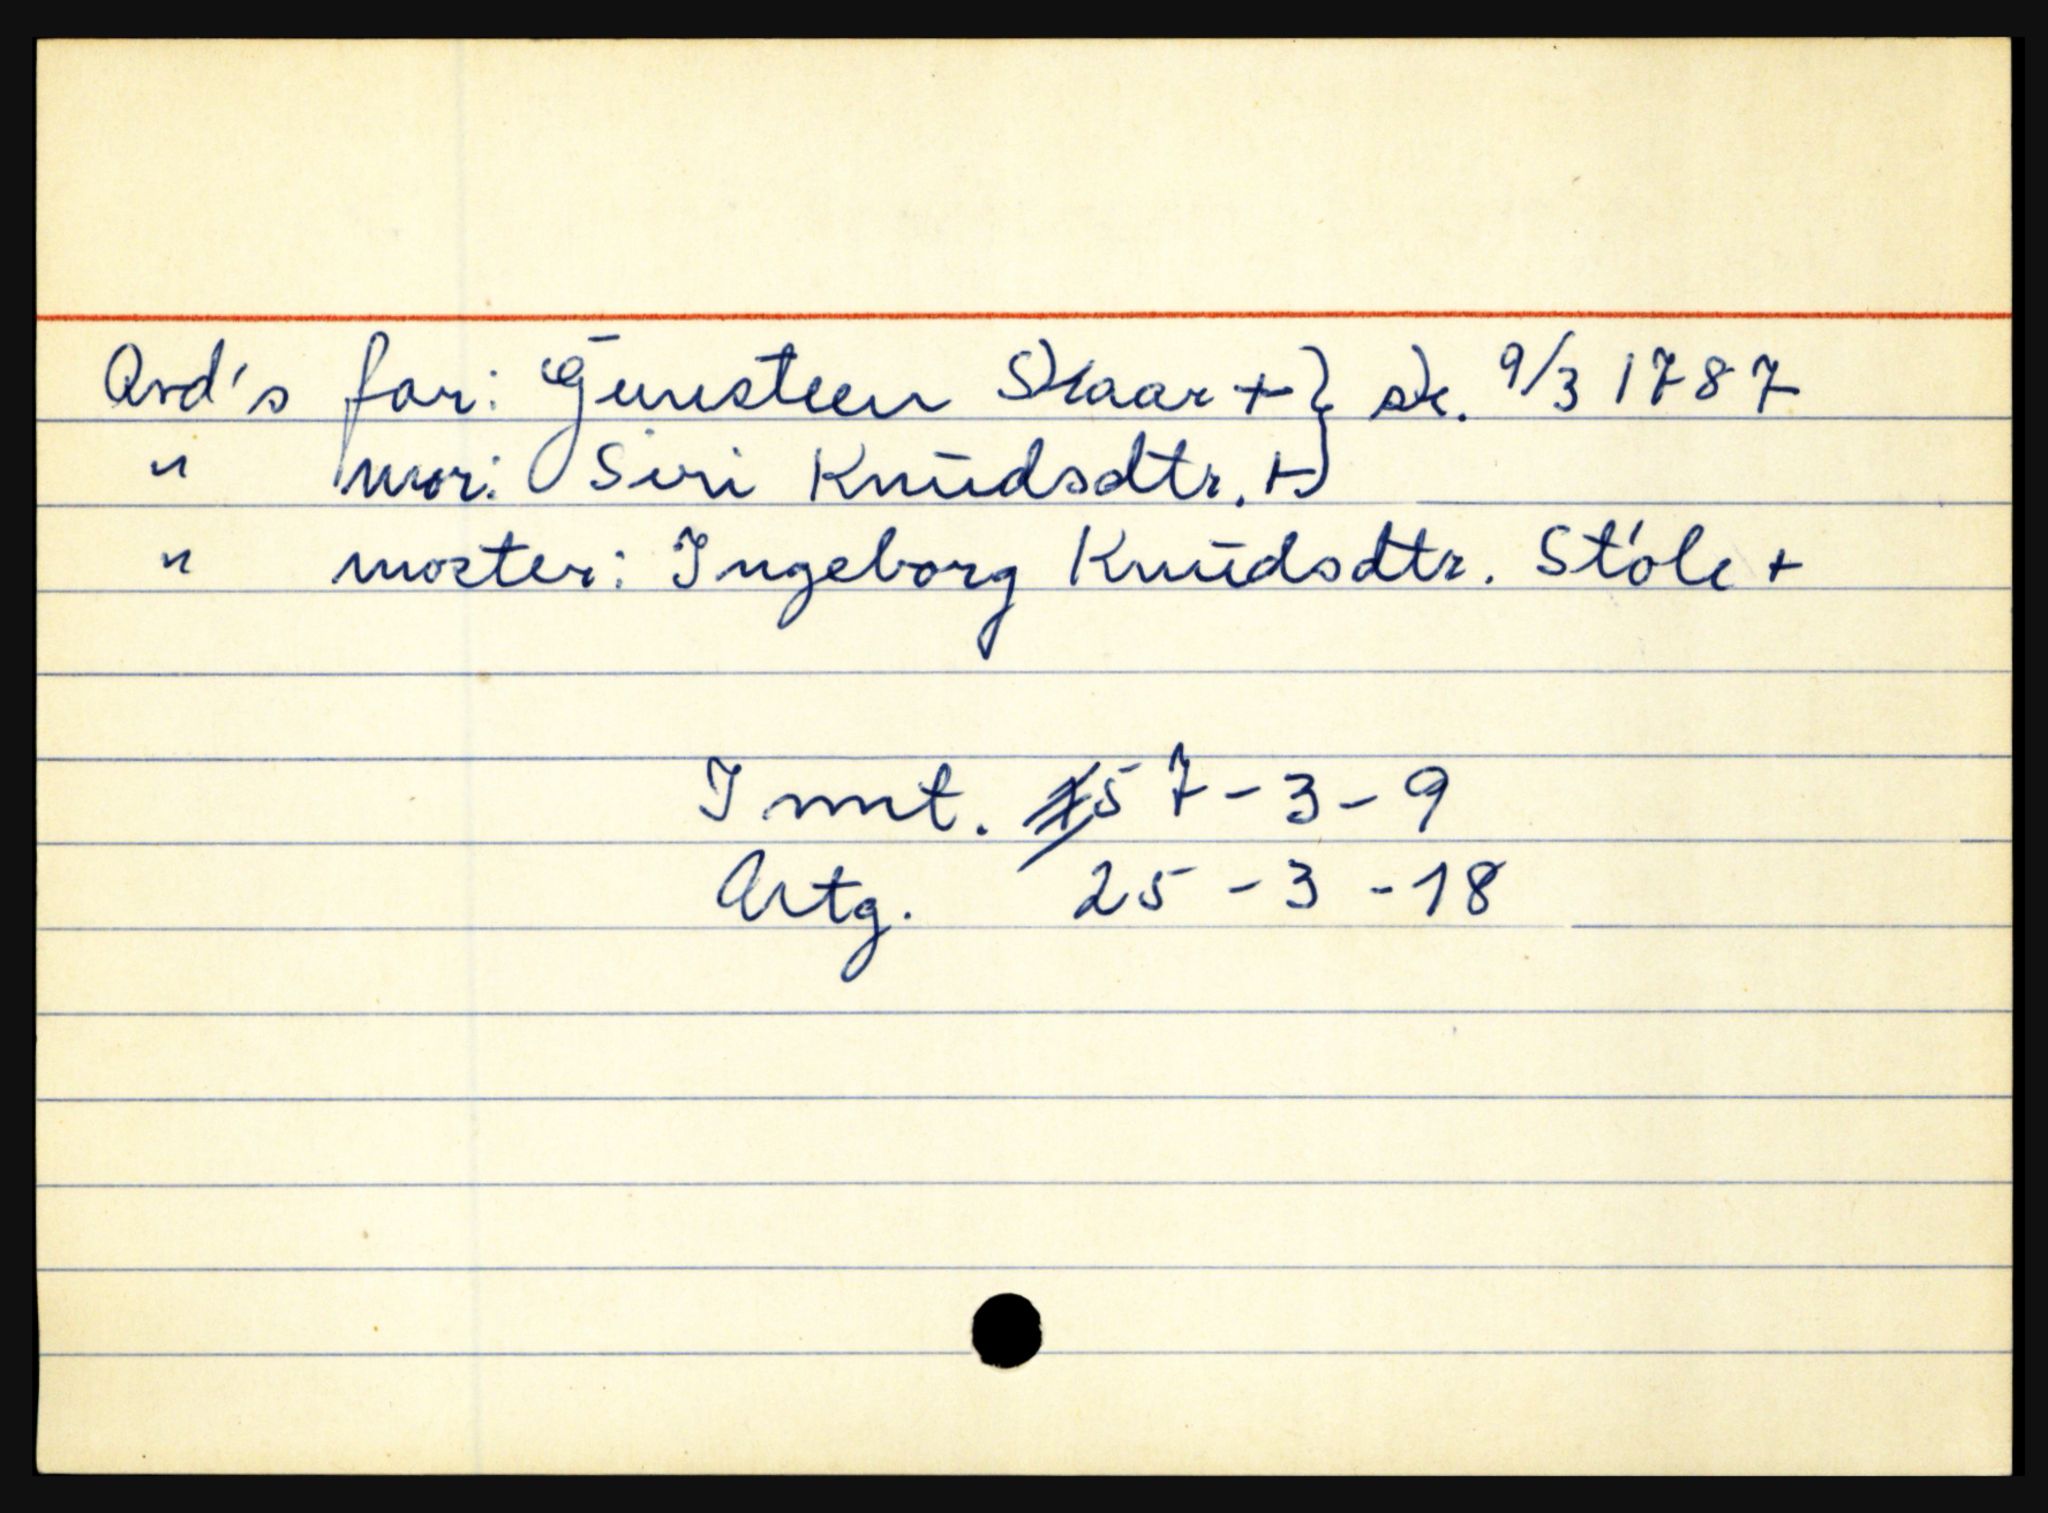 Avd's far: Gunsteen Skaar + } sk. 9/3 1787
" mor: Siri Knudsdtr. + }
" moster: Ingeborg Knudsdtr. Støle +
Innt. 57-3-9
Artg. 25-3-18